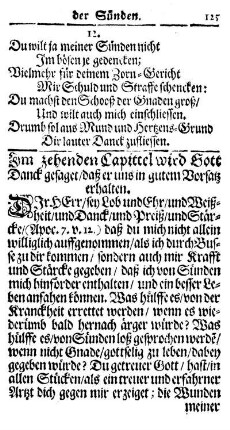 der Sünden. 125
12.
Du wilt ja meiner Sünden nicht
Im bösen je gedencken;
Vielmehr für deinem Zorn-Gericht
Mir Schuld und Straffe schencken:
Du machst den Schoß der Gnaden groß/
Und wilt auch mich einschliessen.
Drumb sol aus Mund und Hertzens-Grund
Dir lauter Danck zufliessen.
Im zehenden Capittel wird Gott
Danck gesaget/daß er uns in gutem Vorsatz
erhalten.
DIr, HErr/sey Lob und Ehr/und Weiß-
heit/und Danck/und Preiß/und Stär-
cke/(Apoc. 7. v. 12.) daß du mich nicht allein
williglich auffgenommen/als ich durch Bus-
se zu dir kommen/ sondern auch mir Krafft
und Stärcke gegeben/ daß ich von Sünden
mich hinforder enthalten/ und ein besser Le-
ben anfahen können. Was hülffe es/von der
Kranckheit errettet werden/ wenn es wie-
derümb bald hernach ärger würde? Was
hülffe es/von Sünden loß gesprochen werdē/
wenn nicht Gnade/gottselig zu leben/dabey
gegeben würde? Du getreuer Gott/ hast/in
allen Stücken/als ein treuer und erfahrner
Artzt dich gegen mir erzeiget; die Wunden
meiner